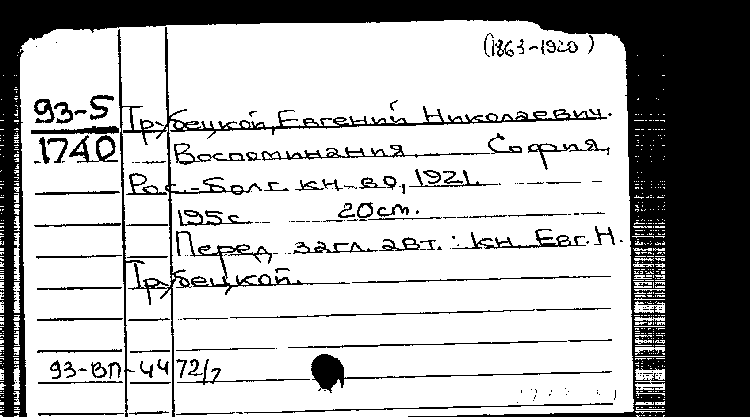 (1863-1920)
93-5 Трубецкой, Евгений Николаевич.
1740 Воспоминания. София,
Рос.-Болг. кн-во, 1921.
195с 20см.
Перед загл. авт.: кн. Евг. Н.
Трубецкой.
93-ВП-4472/7